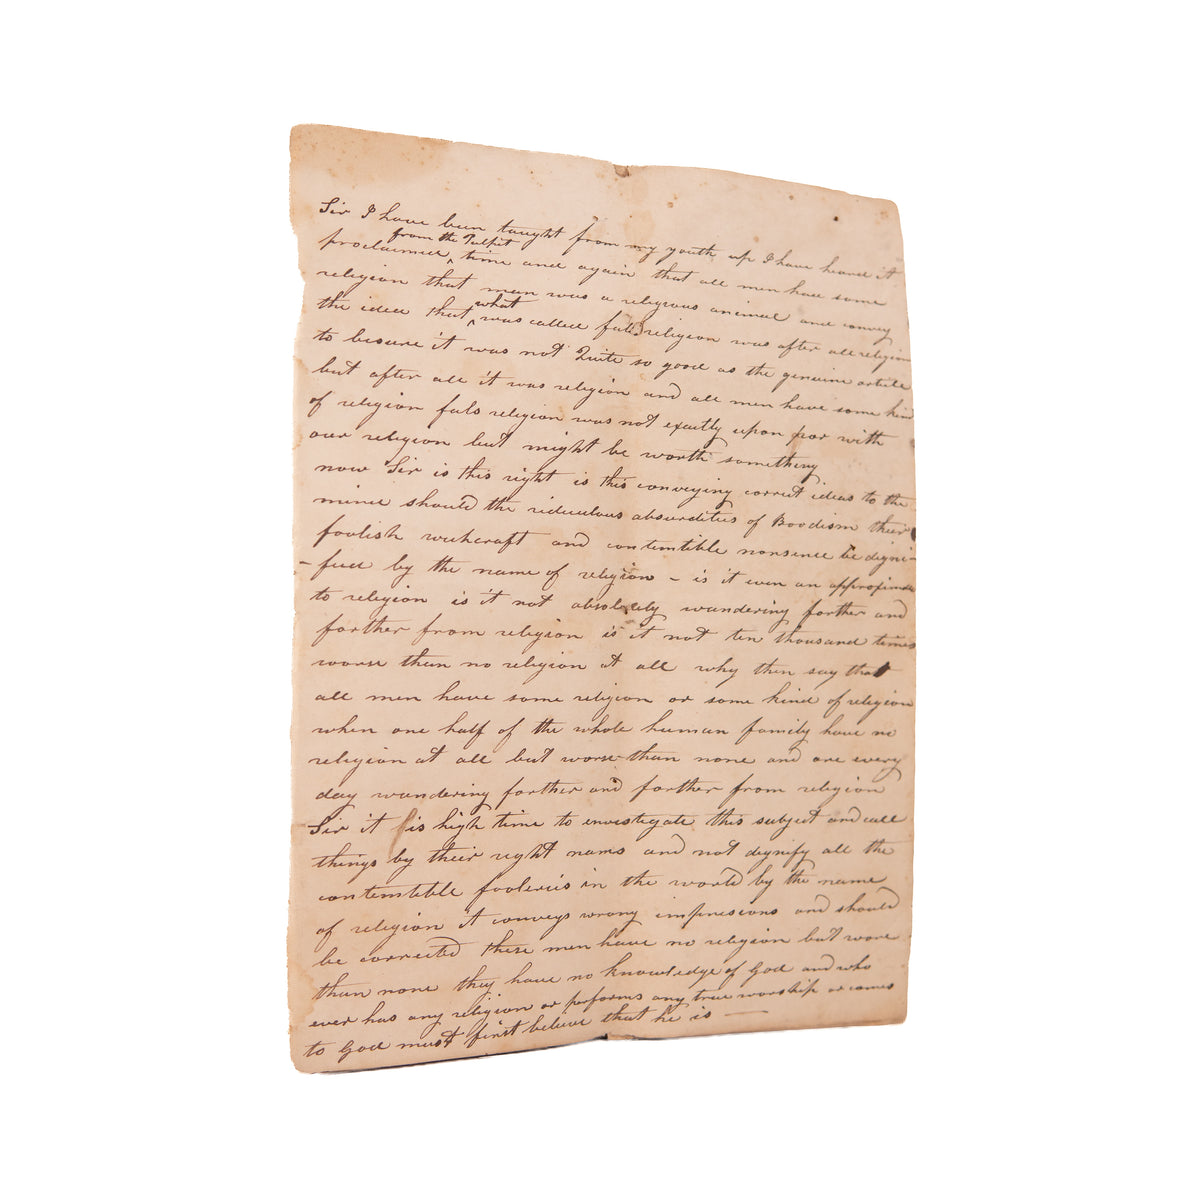 Sir I have been taught from my youth up I have heard it
from the Pulpit
proclaimed ^ time and again that all men had some
religion that man was a religious animal and convey
what
the idea that ^ was called fals religion was after all religion
to besure it was not Quite so good as the genuine article
but after all it was religion and all men have some kind
of religion fals religion was not exactly upon par with
our religion but might be worth something
now Sir is this right is this conveying correct ideas to the
mind should the rediculous absurdities of Boodism their
foolish witchcraft and contemtible nonsence be digni-
-fied by the name of religion - is it even an approximate
to religion is it not absolutely wandering forther and
forther from religion is it not ten thousand times
worse then no religion at all why then say that
all men have some religion or some kind of religion
when one half of the whole human family have no
religion at all but worse than none and are every
day wandering forther and forther from religion
Sir it is high time to envestigate this subject and call
things by their right nams and not dignify all the
contemtible fooleries in the world by the name
of religion it conveys wrong impresions and should
be corrected these men have no religion but wors
than none they have no knowledge of God and who
ever has any religion or performs any true worship or comes
to God must first believe that he is —